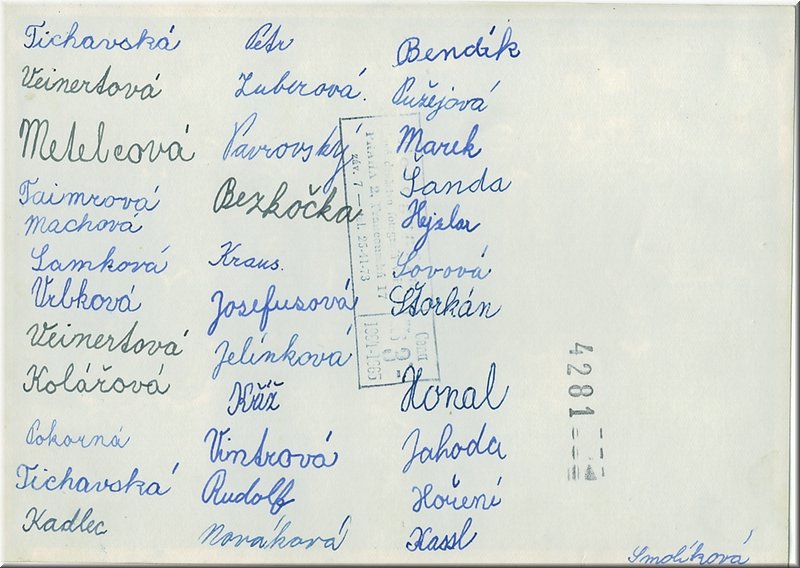 Tichavská
Veinertová
Metelcová
Taimrová
Machová
Samková
Vrbková
Veinertová
Kolářová
Pokorná
Tichavská
Kadlec
Petr
Zuberová.
Pavrovský
Bezkočka
Kraus.
Josefusová
Jelínková
Kříž
Vintrová
Rudolf
Nováková
Bendík
Pužejová
Marek
Šanda
Hejzlar
Sovová
Štorkán
Honal
Jahoda
Hoření
Kassl
Smolíková
4281